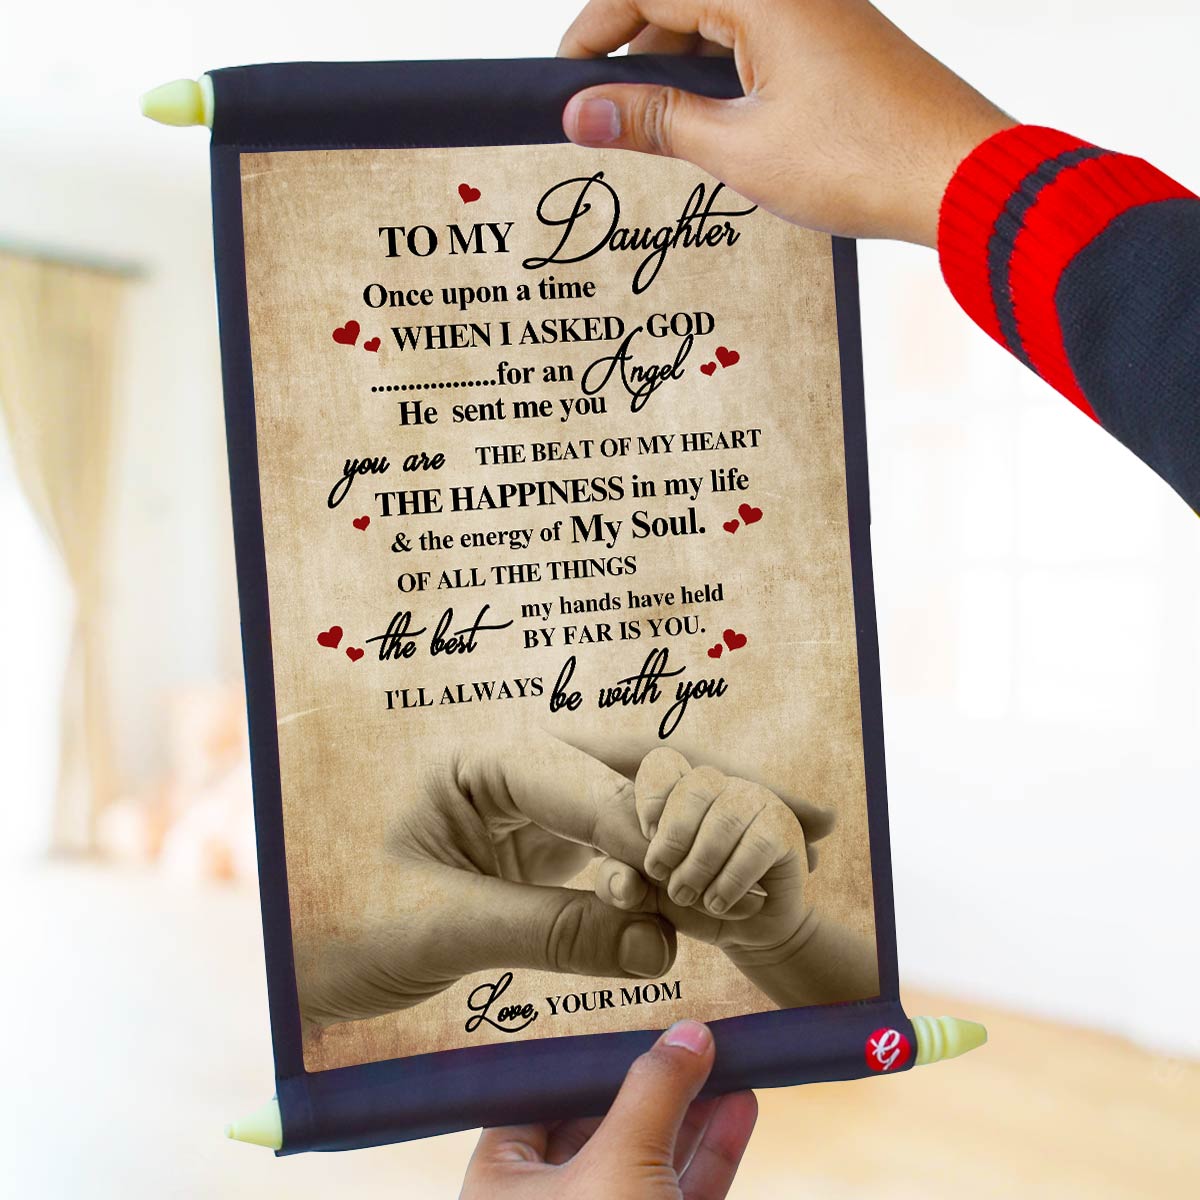 TO MY Daughter
Once upon a time
WHEN I ASKED GOD
..................for an Angel
He sent me you
you are THE BEAT OF MY HEART
THE HAPPINESS in my life
& the energy of My Soul.
OF ALL THE THINGS
the best my hands have held
BY FAR IS YOU.
I'LL ALWAYS be with you
Love, YOUR MOM